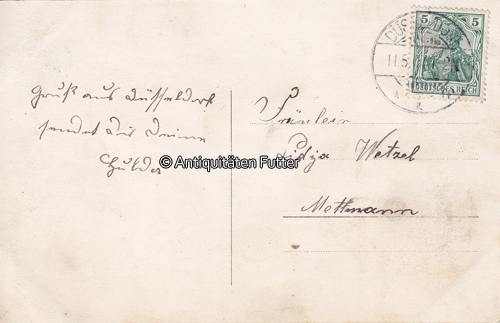 Gruß aus Düsseldorf
sendet Dir Deine
Hulda
© Antiquitäten Futter
Fräulein
Lidja Wetzel
Mettmann
5 5
DEUTSCHES REICH
DÜSSELDORF
11.5.